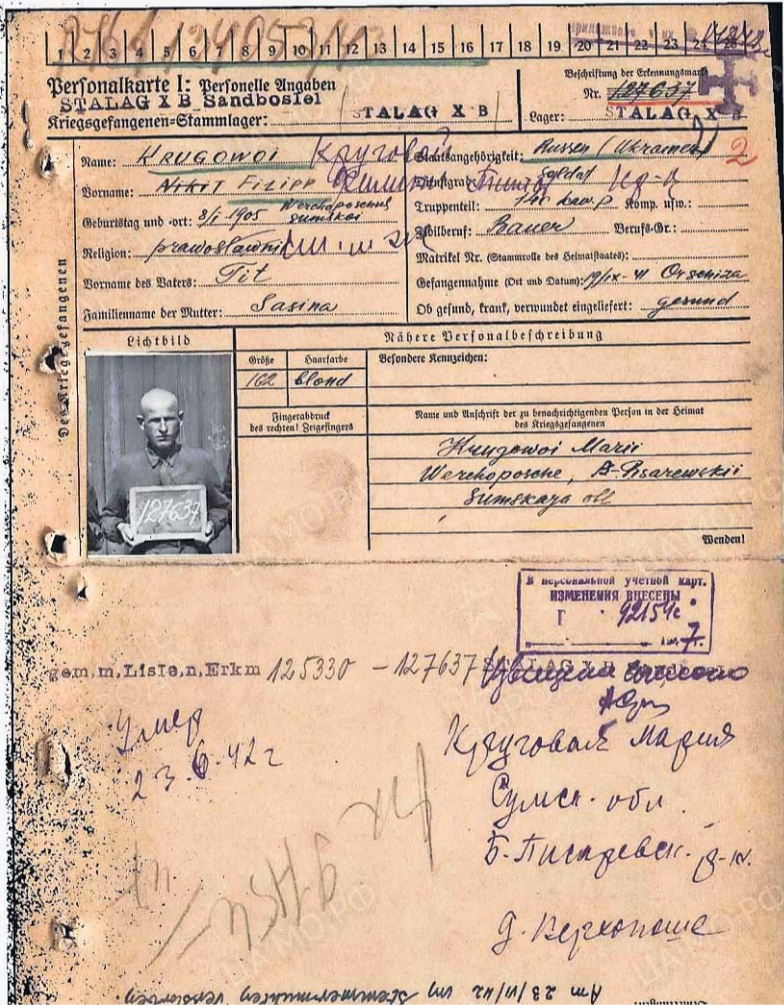 1 2 3 4 5 6 7 8 9 10 11 12 13 14 15 16 17 18 19 20 21 22 23 24 25
Personalkarte I: Personelle Angaben
STALAG X B Sandbostel
Kriegsgefangenen=Stammlager: STALAG X B
Beschriftung der Erkennungsmarke
Nr. 127637
Lager: STALAG X B
2
Des Kriegsgefangenen
Name: KRUGOWOI Круговой
Vorname: NIKIT FILIPP
Geburtstag und =ort: 8/I-1905 Werchoposche Sumskoi
Religion: prawoslawni
Vorname des Vaters: Tit
Familienname der Mutter: Sasina
Staatsangehörigkeit: Russen (Ukrainer)
Dienstgrad: Soldat
Truppenteil: Komp. usw.:
Zivilberuf: Bauer Berufs=Gr.:
Matrikel Nr. (Stammrolle des Heimatstaates):
Gefangennahme (Ort und Datum): 19/IX-41 Orschiza
Ob gesund, krank, verwundet eingeliefert: gesund
Lichtbild
127637
Größe Haarfarbe
162 blond
Fingerabdruck
des rechten! Zeigefingers
Nähere Personalbeschreibung
Besondere Kennzeichen:
Name und Anschrift der zu benachrichtigenden Person in der Heimat
des Kriegsgefangenen
Krugowoi Marii
Werchoposche, B-Pisarewskii
Sumskaya obl
Wenden!
В персональной учетной карт.
ИЗМЕНЕНИЯ ВНЕСЕНЫ
Г 92154с
7
gem.m.Liste,n,Erkm 125330 - 127637 STALAG X B
Умер
23.6.42 г
Круговая Мария
Сумск. обл
Б.-Писаревск. р-н.
д. Верхопоше
Am 23/VI/42 im verstorben.